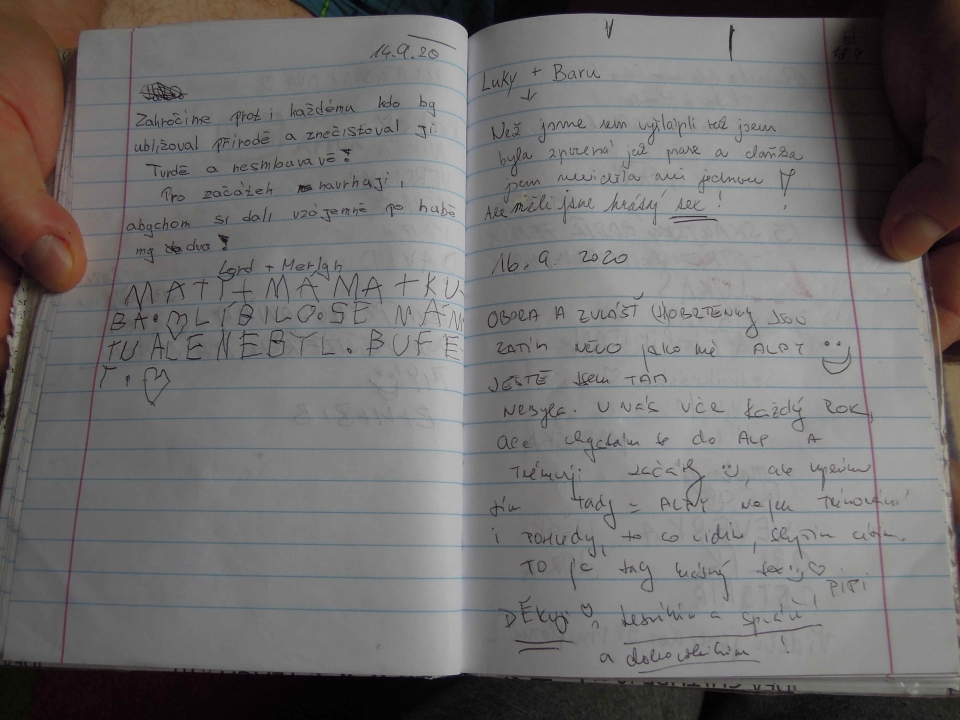 14.9.20
Zakročíme proti každému kdo by
ubližoval přírodě a znečisťoval ji
Tvrdě a nesmlouvavě!
Pro začátek navrhuji,
abychom si dali vzájemně po hubě
my dva!
Lord + Merlyn
MATY+MÁMA+KU
BA.♡LÍBILO.SE NÁM
TU ALE NEBYL.BUFE
T.♡
Luky + Baru
↓
Než jsme sem vyšlápli tož jsem
byla zpocená jež prase a
jsem neviděla ani jednou!
Ale měli jsme krásný sex!
16.9. 2020
OBORA A ZVLÁŠŤ JSOU
ZATÍM NĚCO jako mé ALPY
JEŠTĚ jsem TAM
NEBYLA. U NÁS VČE KAŽDÝ ROK,
ale chystám se do ALP A
TRÉNUJI začátky, ale
tím tady = ALPY nejen TRÉNOVÁNÍ
i POHLEDY, to co vidím, slyším cítím
TO je tay krásný sex ♡
PIPI
DĚKUJI lesníkům a správě!
a dobrovolníkům!